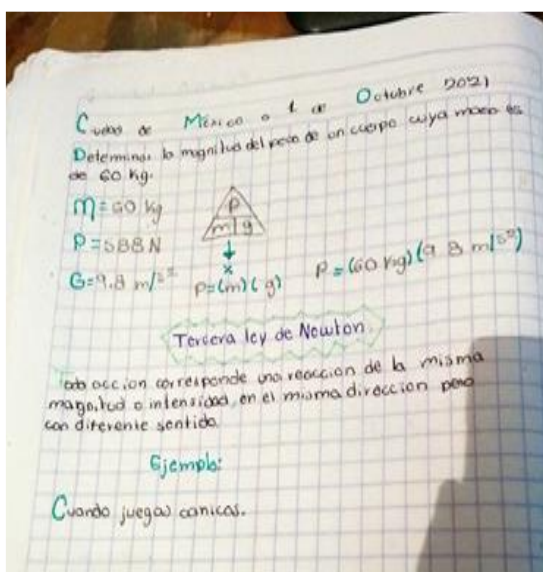 Ciudad de México a 1 de Octubre 2021
Determinar la magnitud del peso de un cuerpo cuya masa es
de 60 kg.
m=60 kg
P
m g
P=588N
x
G=9.8 m/s²
P=(m)(g)
P=(60 kg)(9.8 m/s²)
Tercera ley de Newton
Toda accion corresponde una reaccion de la misma
magnitud o intensidad, en el misma direccion pero
con diferente sentido.
Ejemplo:
Cuando juegas canicas.